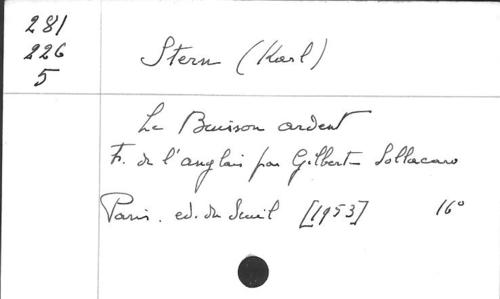 281
226
5
Stern (Karl)
Le Buisson ardent
F. de l'anglais par Gilberte Sollacaro
Paris. ed. du Seuil [1953] 16°